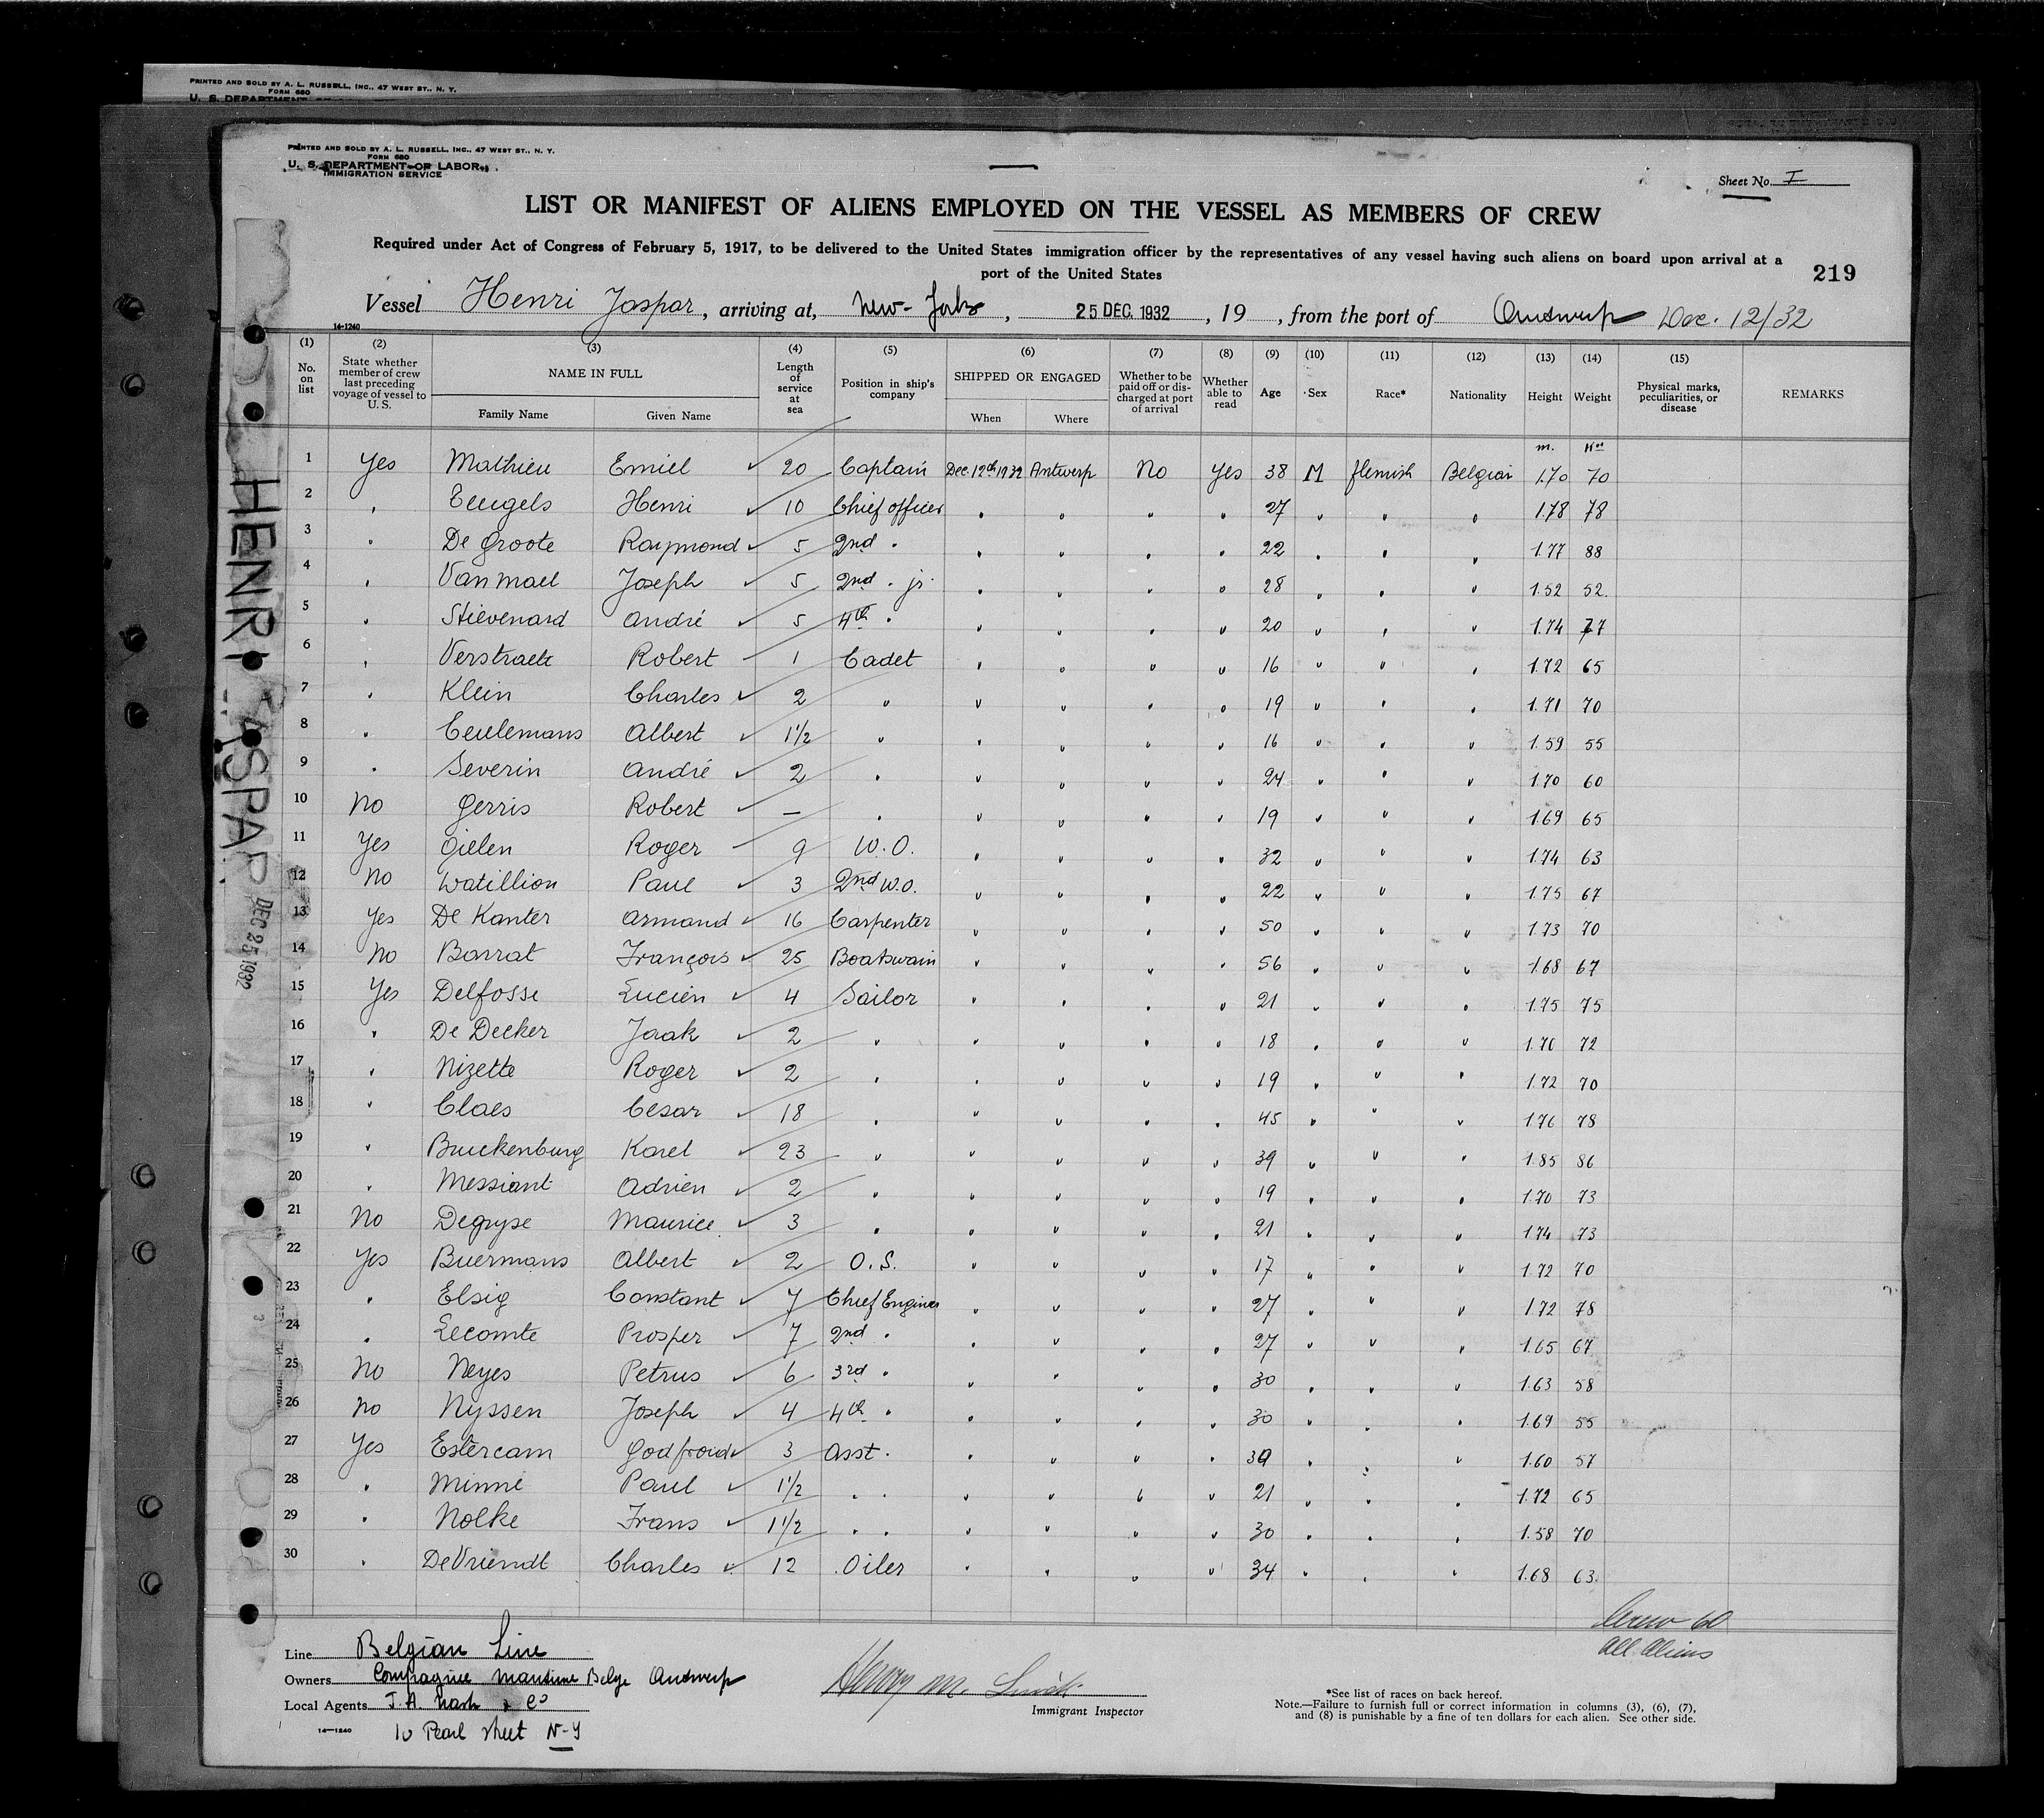 PRINTED AND SOLD BY A. L. RUSSELL, INC., 47 WEST ST., N. Y.
FORM 680
U. S. DEPARTMENT OF LABOR
PRINTED AND SOLD BY A. L. RUSSELL, INC., 47 WEST ST., N. Y.
FORM 680
U. S. DEPARTMENT OF LABOR
IMMIGRATION SERVICE
Sheet No. I
LIST OR MANIFEST OF ALIENS EMPLOYED ON THE VESSEL AS MEMBERS OF CREW
Required under Act of Congress of February 5, 1917, to be delivered to the United States immigration officer by the representatives of any vessel having such aliens on board upon arrival at a
port of the United States
219
Vessel Henri Jaspar, arriving at, New-York, 25 DEC. 1932, 19 , from the port of Antwerp Dec. 12/32
14-1240
(1) No. on list (2) State whether member of crew last preceding voyage of vessel to U. S. (3) NAME IN FULL Family Name Given Name (4) Length of service at sea (5) Position in ship's company (6) SHIPPED OR ENGAGED When Where (7) Whether to be paid off or discharged at port of arrival (8) Whether able to read (9) Age (10) Sex (11) Race* (12) Nationality (13) Height (14) Weight (15) Physical marks, peculiarities, or disease REMARKS
m.
1 Yes Mathieu Emiel ✓ 20 Captain Dec. 12th 1932 Antwerp No Yes 38 M flemish Belgian 1.70 70
2 " Teugels Henri ✓ 10 Chief officer " " " " 27 " " " 1.78 78
3 " De Groote Raymond ✓ 5 2nd " " " " " 22 " " " 1.77 88
4 " Van mael Joseph ✓ 5 2nd " jr. " " " " 28 " " " 1.52 52
5 " Stievenard André ✓ 5 4th " " " " " 20 " " " 1.74 77
6 " Verstraete Robert ✓ 1 Cadet " " " " 16 " " " 1.72 65
7 " Klein Charles ✓ 2 " " " " " 19 " " " 1.71 70
8 " Ceulemans Albert ✓ 1 1/2 " " " " " 16 " " " 1.59 55
9 " Severin André ✓ 2 " " " " " 24 " " " 1.70 60
10 No Gerris Robert ✓ — " " " " " 19 " " " 1.69 65
11 Yes Gielen Roger ✓ 9 W.O. " " " " 32 " " " 1.74 63
12 No Watillion Paul ✓ 3 2nd W.O. " " " " 22 " " " 1.75 67
13 Yes De Kanter Armand ✓ 16 Carpenter " " " " 50 " " " 1.73 70
14 No Barrat François ✓ 25 Boatswain " " " " 56 " " " 1.68 67
15 Yes Delfosse Lucien ✓ 4 Sailor " " " " 21 " " " 1.75 75
16 " De Decker Jaak ✓ 2 " " " " " 18 " " " 1.70 72
17 " Nizette Roger ✓ 2 " " " " " 19 " " " 1.72 70
18 " Claes Cesar ✓ 18 " " " " " 45 " " " 1.76 78
19 " Bruckenburg Karel ✓ 23 " " " " " 39 " " " 1.85 86
20 " Messiant Adrien ✓ 2 " " " " " 19 " " " 1.70 73
21 No Degryse Maurice ✓ 3 " " " " " 21 " " " 1.74 73
22 Yes Buermans Albert ✓ 2 O.S. " " " " 17 " " " 1.72 70
23 " Elsig Constant ✓ 7 Chief Engineer " " " " 27 " " " 1.72 78
24 " Lecomte Prosper ✓ 7 2nd " " " " " 27 " " " 1.65 67
25 No Neyes Petrus ✓ 6 3rd " " " " " 30 " " " 1.63 58
26 No Nyssen Joseph ✓ 4 4th " " " " " 30 " " " 1.69 55
27 Yes Estercam Godfroid ✓ 3 Asst. " " " " 39 " " " 1.60 57
28 " Minne Paul ✓ 1 1/2 " " " " " " 21 " " " 1.72 65
29 " Nolke Frans ✓ 1 1/2 " " " " " " 30 " " " 1.58 70
30 " De Vriendt Charles ✓ 12 Oiler " " " " 34 " " " 1.68 63
Crew 60
All Aliens
Line Belgian Line
Owners Compagnie Maritime Belge Antwerp
Local Agents J. A. Nash & Co
14—1240
10 Pearl Street N-Y
Henry M.
Immigrant Inspector
*See list of races on back hereof.
Note.—Failure to furnish full or correct information in columns (3), (6), (7),
and (8) is punishable by a fine of ten dollars for each alien. See other side.
HENRI JASPAR
DEC 25 1932